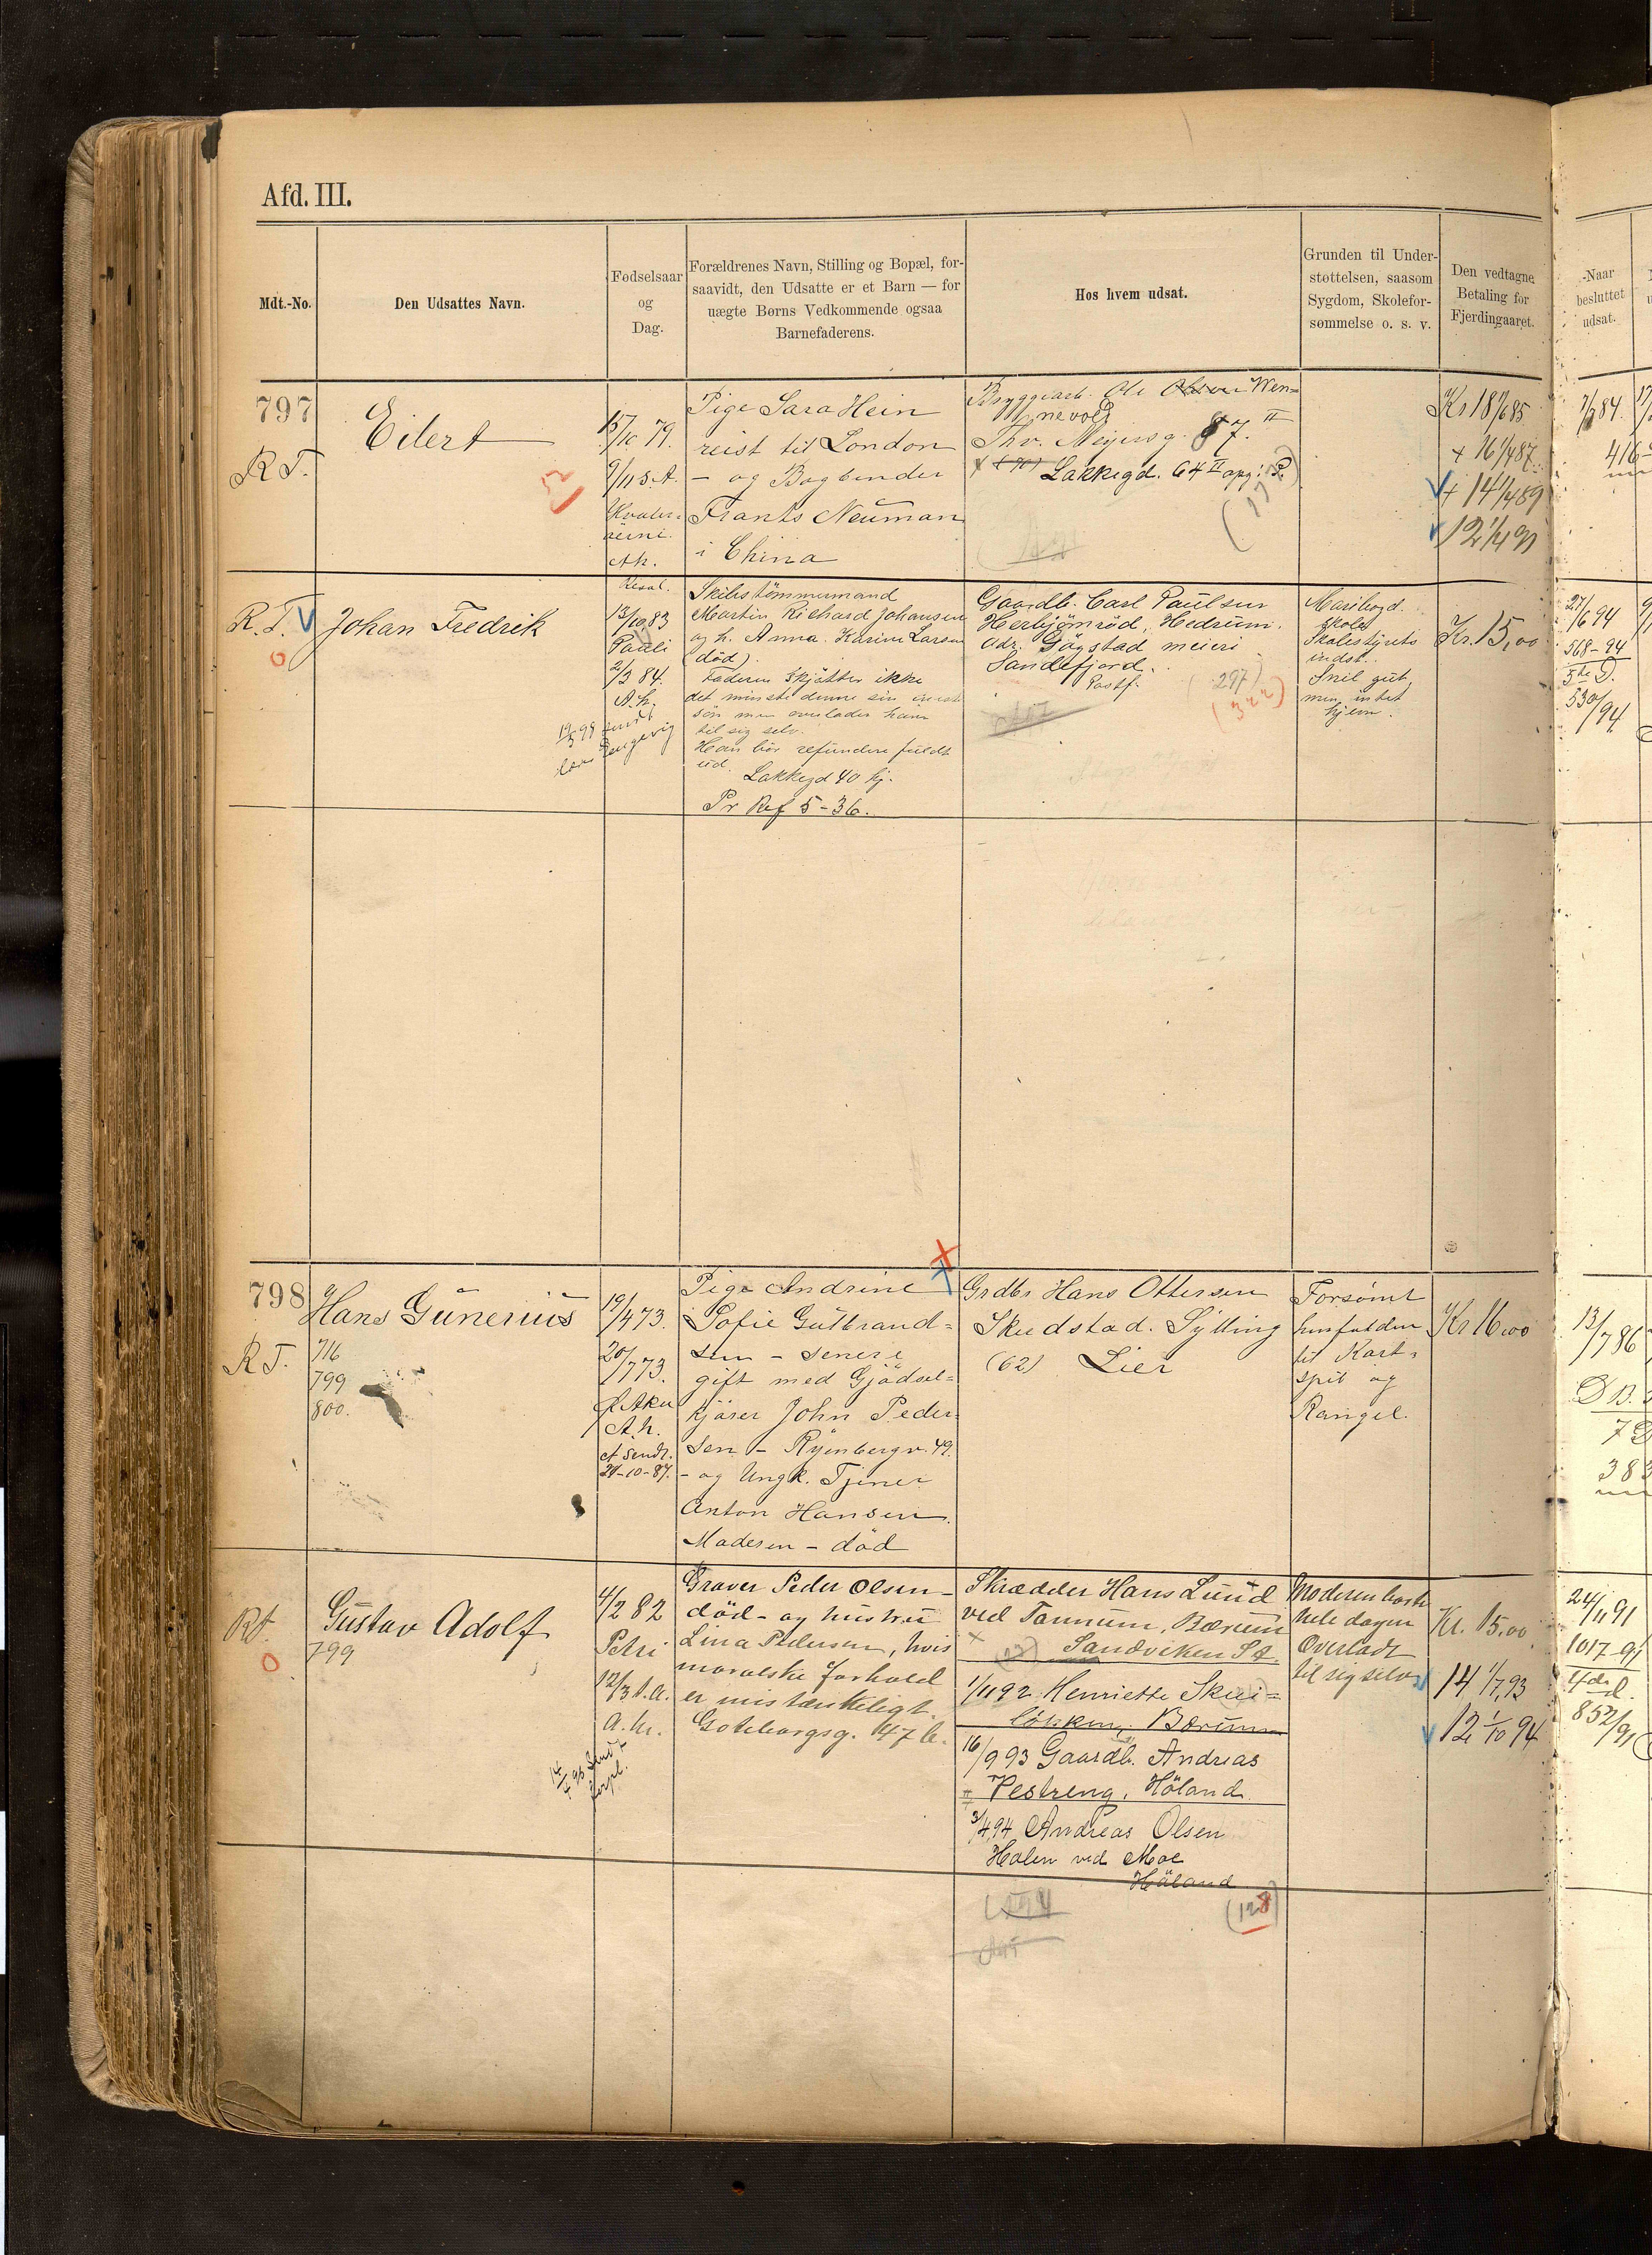 Afd. III.
Mdt.-No.
Den Udsattes Navn.
Fødselsaar
og
Dag.
Forældrenes Navn, Stilling og Bopæl, for-
saavidt, den Udsatte er et Barn — for
uægte Børns Vedkommende ogsaa
Barnefaderens.
Hos hvem udsat.
Grunden til Under-
støttelsen, saasom
Sygdom, Skolefor-
sømmelse o. s. v.
Den vedtagne
Betaling for
Fjerdingaaret.
-Naar
besluttet
udsat.
797
R T.
Eilert
15/10 79.
9/11 s. A.
Ah.
Pige Sara Hein
reist til London
- og Bogbinder
Frants Neuman
i China
Bryggearb. Ole Olsen Wen=
nevold
Thv. Meyersg. 87. II
Lakkegd. 64 II opg: B.
Kr 18 1/6 85
+ 16 1/4 87
+ 14 1/4 89
12 1/4 90
7/7 84.
416
R. T. V
Johan Fredrik
13/10 83
Pauli
2/3 84.
A. h.
Skibstömmermand
Martin Richard Johansen
og h. Anna Karine Larsen
(död).
Faderen skjötter ikke
det minste denne sin
sön men overlader ham
til sig selv.
Han bör refundere fuldt
ud.
Lakkegd 40 kj.
Pr Ref 5-36.
Gaardb. Carl Paulsen
Herbjönröd, Hedrum.
Adr. Gögstad meieri
Sandefjord.
Postf.
(297)
(322)
Maribogd.
skole
Skolestyrets
indst.
Snil gut,
men intet
hjem.
Kr. 15,00
27/6 94
568-94
5te D.
530/94
798
R T.
Hans Gunerius
716
799
800.
19/4 73.
20/7 73.
G. Aker
A. h.
At sendt.
21-10-87.
Pige Andrine
Sofie Gulbrand=
sen - senere
gift med Gjödsel=
kjörer John Peder=
sen - Ryenbergv. 49.
- og Ungk. Tjener
Anton Hansen.
Moderen - död
Grdbr Hans Ottersen
Skudstad. Sylling
(62) Lier
Forsömt
henfalden
til Kort=
spil og
Rangel.
Kr 16,00
13/7 86
Rt.
Gustav Adolf
799
4/2 82
Petri
12/3 s. A.
A. h.
Graver Peder Olsen -
död - og hustru
Lina Pedersen, hvis
moralske forhold
er mistænkeligt.
Goteborgsg. 47 b.
Skrædder Hans Lund
ved Tannum, Bærum
Sandviken St.
1/11 92 Henriette Skui=
løkken, Bærum
16/9 93 Gaardb. Andreas
Vestreng, Höland.
3/4 94 Andreas Olsen
Holen ved Moe
Höland
(128)
Moderen borte
hele dagen
Overladt
til sig selv.
Kr. 15,00
14 1/7 93
12 1/10 94
24/11 91
1017-91
4de d.
852/91